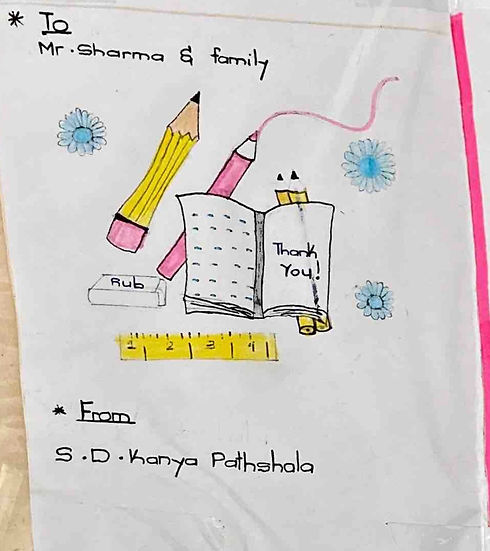 * To
Mr. Sharma & family
Thank
You!
Rub
1 2 3 4
* From
S.D. Kanya Pathshala